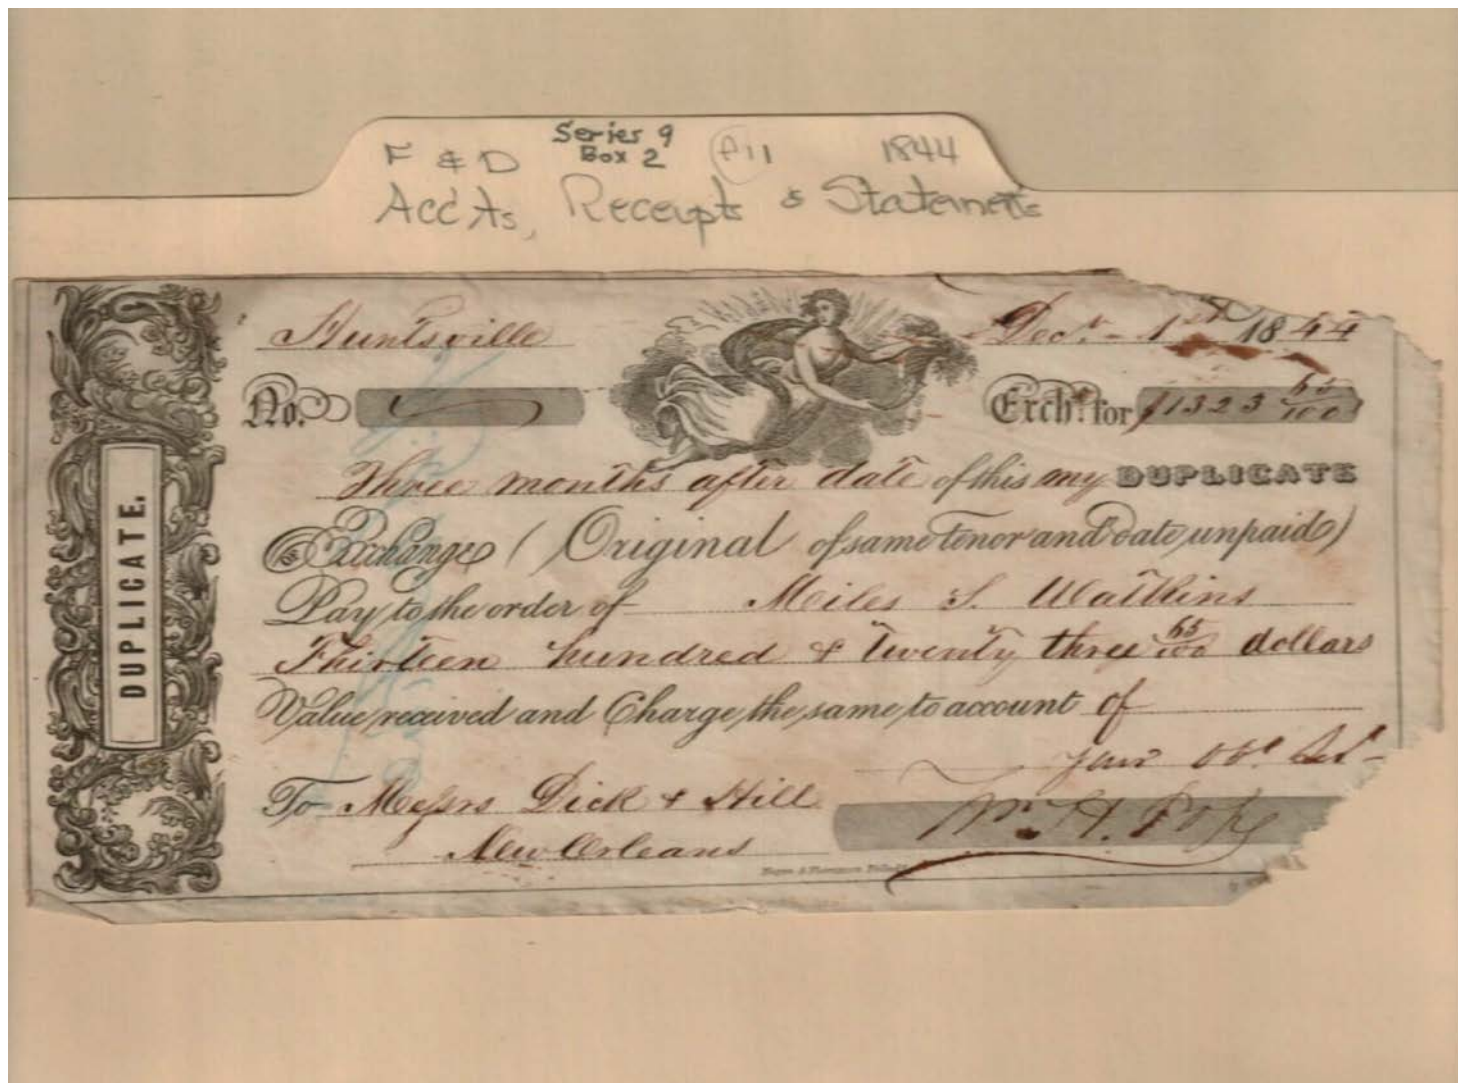 Series 9
F & D Box 2 P11 1844
Acc'ts, Receipts & Statements
Huntsville Dec.r 1st 1844
No. Exch.e for $1323 65/100
Three months after date of this my DUPLICATE
Exchange (Original of same tenor and date unpaid)
Pay to the order of Miles S. Watkins
Thirteen hundred & twenty three 65/100 dollars
Value received and Charge the same to account of
Your Obt. Svt.
To Messrs Dick & Hill
New Orleans
DUPLICATE.